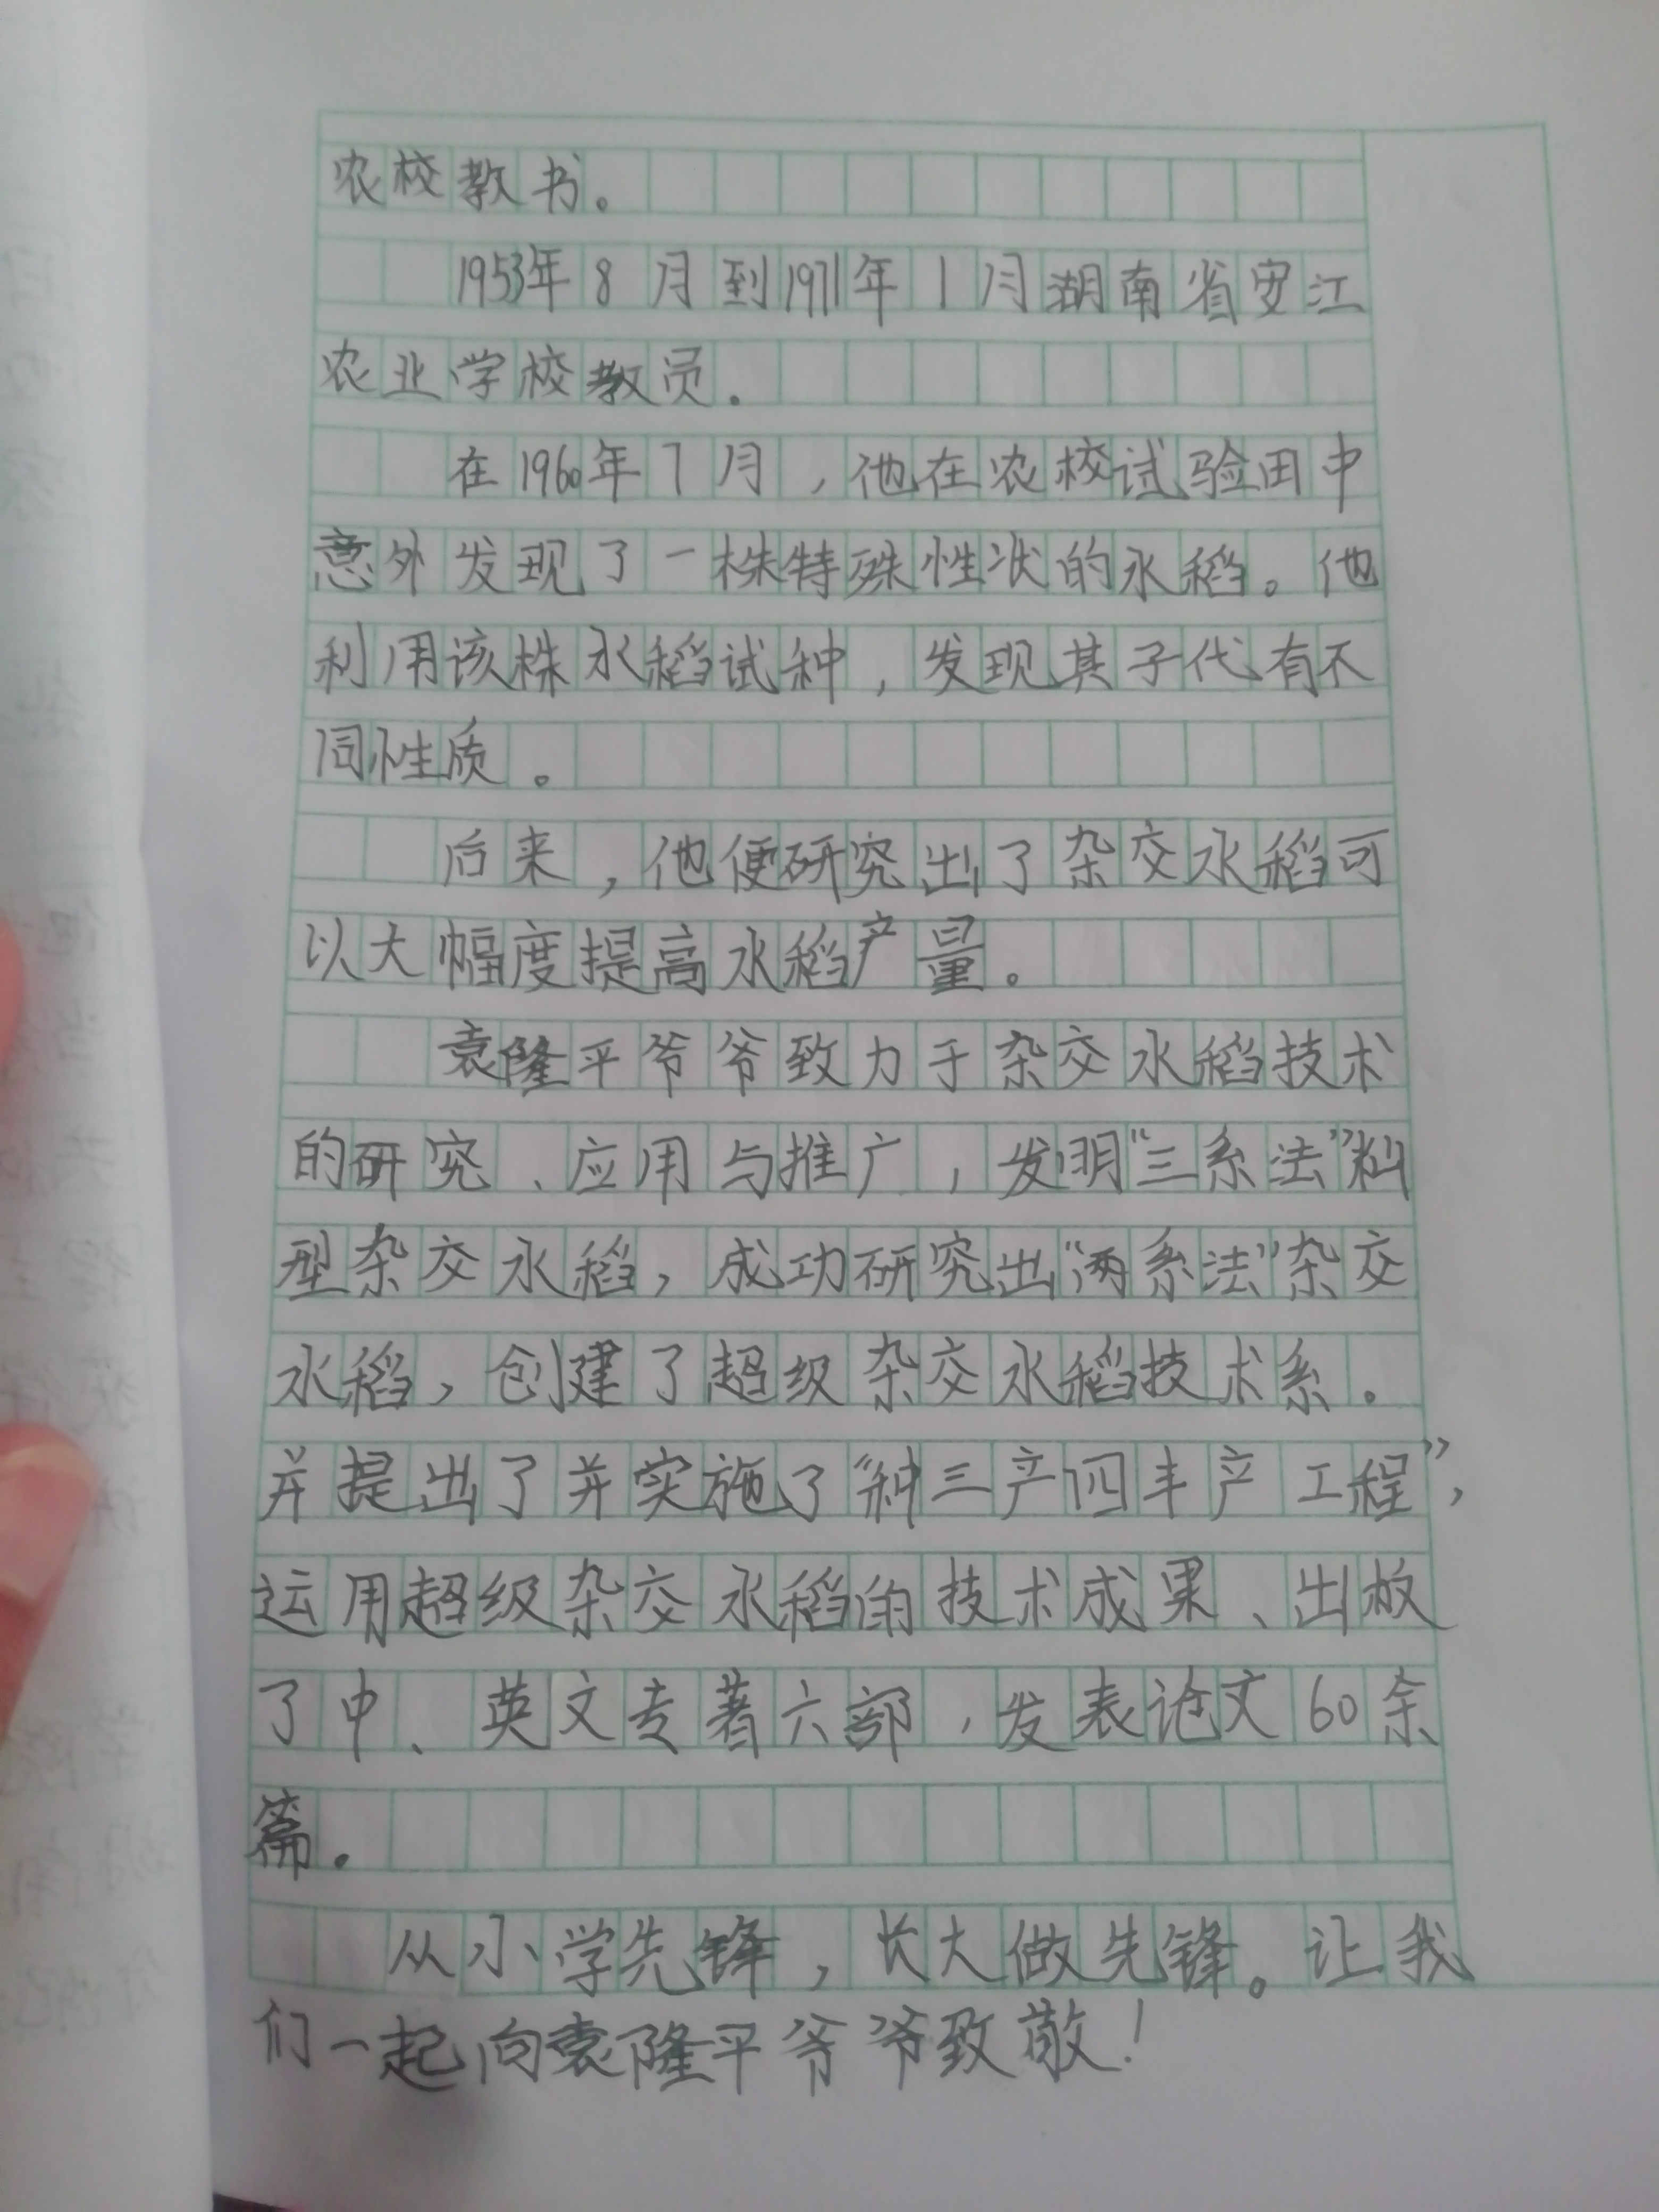 农校教书。
1953年8月到1971年1月湖南省安江
农业学校教员.
在1960年7月，他在农校试验田中
意外发现了一株特殊性状的水稻。他
利用该株水稻试种，发现其子代有不
同性质。
后来，他便研究出了杂交水稻可
以大幅度提高水稻产量。
袁隆平爷爷致力于杂交水稻技术
的研究、应用与推广，发明“三系法”籼
型杂交水稻，成功研究出“两系法”杂交
水稻，创建了超级杂交水稻技术系。
并提出了并实施了“种三产四丰产工程”，
运用超级杂交水稻的技术成果、出版
了中、英文专著六部，发表论文60余
篇.
从小学先锋，长大做先锋。让我
们一起向袁隆平爷爷致敬！